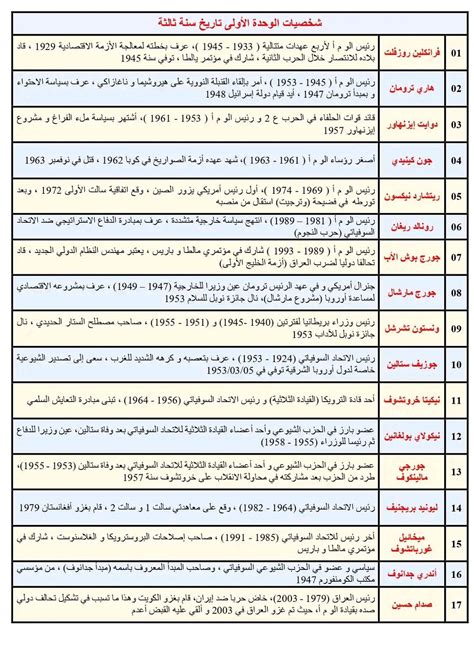 شخصيات الوحدة الأولى تاريخ سنة ثالثة
01 فرانكلين روزفلت
رئيس الو م أ لأربع عهدات متتالية ( 1933 - 1945 )، عرف بخطته لمعالجة الأزمة الاقتصادية 1929 ، قاد
بلاده للانتصار خلال الحرب الثانية ، شارك في مؤتمر يالطا ، توفي سنة 1945
02 هاري ترومان
رئيس الو م أ ( 1945 - 1953 ) ، أمر بإلقاء القنبلة النووية على هيروشيما و ناغازاكي ، عرف بسياسة الاحتواء
و بمبدأ ترومان 1947 ، أيد قيام دولة إسرائيل 1948
03 دوايت إيزنهاور
قائد قوات الحلفاء في الحرب ع 2 و رئيس الو م أ ( 1953 - 1961 )، أشتهر بسياسة ملء الفراغ و مشروع
إيزنهاور 1957
04 جون كينيدي
أصغر رؤساء الو م أ ( 1961 - 1963 )، شهد عهده أزمة الصواريخ في كوبا 1962 ، قتل في نوفمبر 1963
05 ريتشارد نيكسون
رئيس الو م أ ( 1969 - 1974 )، أول رئيس أمريكي يزور الصين ، وقع اتفاقية سالت الأولى 1972 ، وبعد
تورطه في فضيحة (وترجيت) استقال من منصبه
06 رونالد ريغان
رئيس الو م أ ( 1981 – 1989) ، انتهج سياسة خارجية متشددة ، عرف بمبادرة الدفاع الاستراتيجي ضد الاتحاد
السوفياتي (حرب النجوم)
07 جورج بوش الأب
رئيس الو م أ ( 1989 - 1993 ) شارك في مؤتمري مالطا و باريس ، يعتبر مهندس النظام الدولي الجديد ، قاد
تحالفا دوليا لضرب العراق (أزمة الخليج الأولى)
08 جورج مارشال
جنرال أمريكي و في عهد الرئيس ترومان عين وزيرا للخارجية (1947 – 1949) ، عرف بمشروعه الاقتصادي
لمساعدة أوروبا (مشروع مارشال)، نال جائزة نوبل للسلام 1953
09 ونستون تشرشل
رئيس وزراء بريطانيا لفترتين (1940 -1945) و (1951 - 1955) ، صاحب مصطلح الستار الحديدي ، نال
جائزة نوبل للآداب 1953
10 جوزيف ستالين
رئيس الاتحاد السوفياتي (1924 - 1953) ، عرف بتعصبه و كرهه الشديد للغرب ، سعى إلى تصدير الشيوعية
خاصة لدول أوروبا الشرقية توفي في 1953/03/05
11 نيكيتا خروتشوف
أحد قادة الترويكا (القيادة الثلاثية) و رئيس الاتحاد السوفياتي (1956 - 1964) ، تبنى مبادرة التعايش السلمي
12 نيكولاي بولغانين
عضو بارز في الحزب الشيوعي وأحد أعضاء القيادة الثلاثية للاتحاد السوفياتي بعد وفاة ستالين، عين وزيرا للدفاع
ثم رئيسا للوزراء (1955 - 1958)
13 جورجي مالينكوف
عضو بارز في الحزب الشيوعي وأحد أعضاء القيادة الثلاثية للاتحاد السوفياتي بعد وفاة ستالين (1953 - 1955)،
طرد من الحزب بعد مشاركته في محاولة الانقلاب على خروتشوف سنة 1957
14 ليونيد بريجنيف
رئيس الاتحاد السوفياتي (1964 - 1982) ، وقع على معاهدتي سالت 1 و سالت 2 ، قام بغزو أفغانستان 1979
15 ميخائيل غورباتشوف
آخر رئيس للاتحاد السوفياتي (1985 - 1991) ، صاحب إصلاحات البروسترويكا و الغلاسنوست ، شارك في
مؤتمري مالطا و باريس
16 أندري جدانوف
سياسي و عضو في الحزب الشيوعي السوفياتي ، وصاحب المبدأ المعروف باسمه (مبدأ جدانوف) ، من مؤسسي
مكتب الكومنفورم 1947
17 صدام حسين
رئيس العراق (1979 - 2003)، خاض حربا ضد إيران، قام بغزو الكويت وهذا ما تسبب في تشكيل تحالف دولي
ضده بقيادة الو م أ ، حيث تم غزو العراق في 2003 و ألقي عليه القبض أعدم